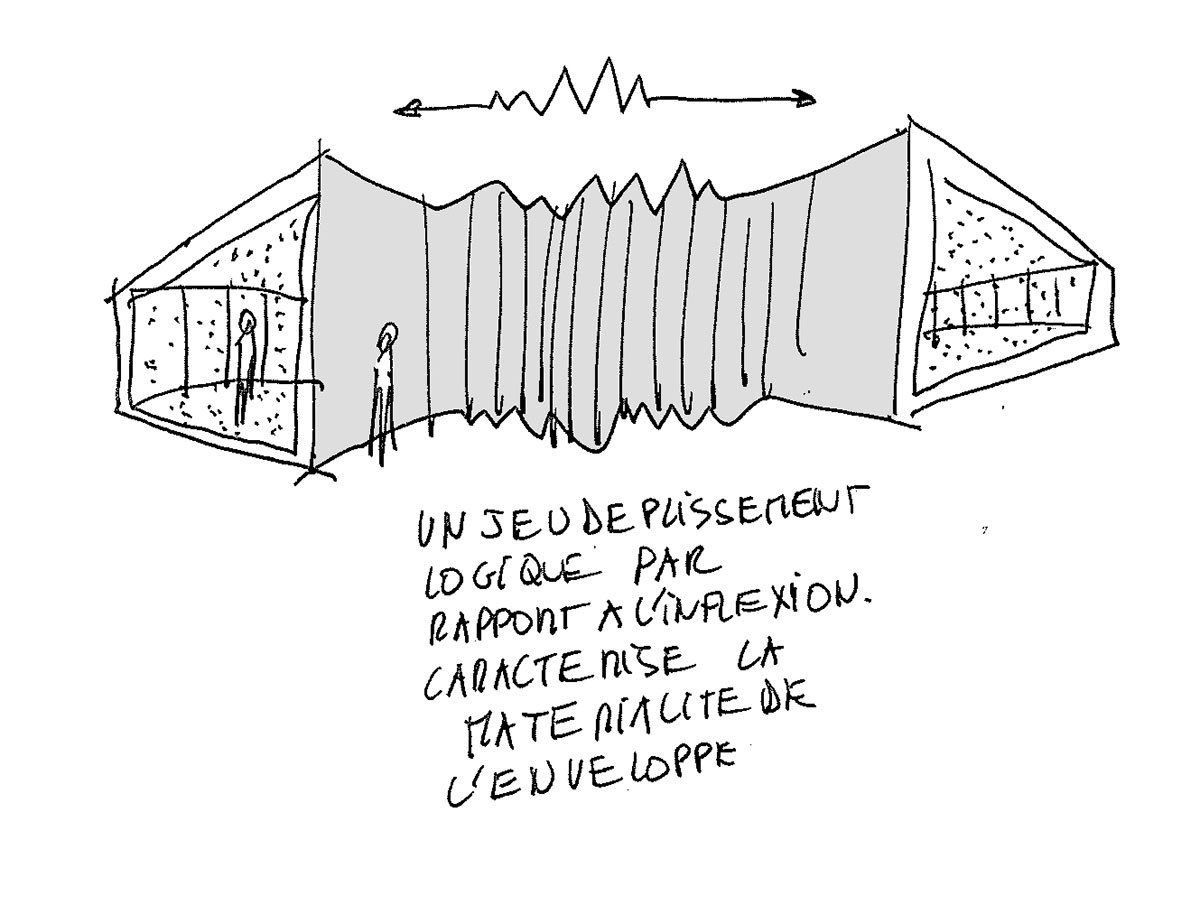 UN JEU DE PLISSEMENT
LOGIQUE PAR
RAPPORT A L'INFLEXION.
CARACTERISE LA
MATERIALITE DE
L'ENVELOPPE